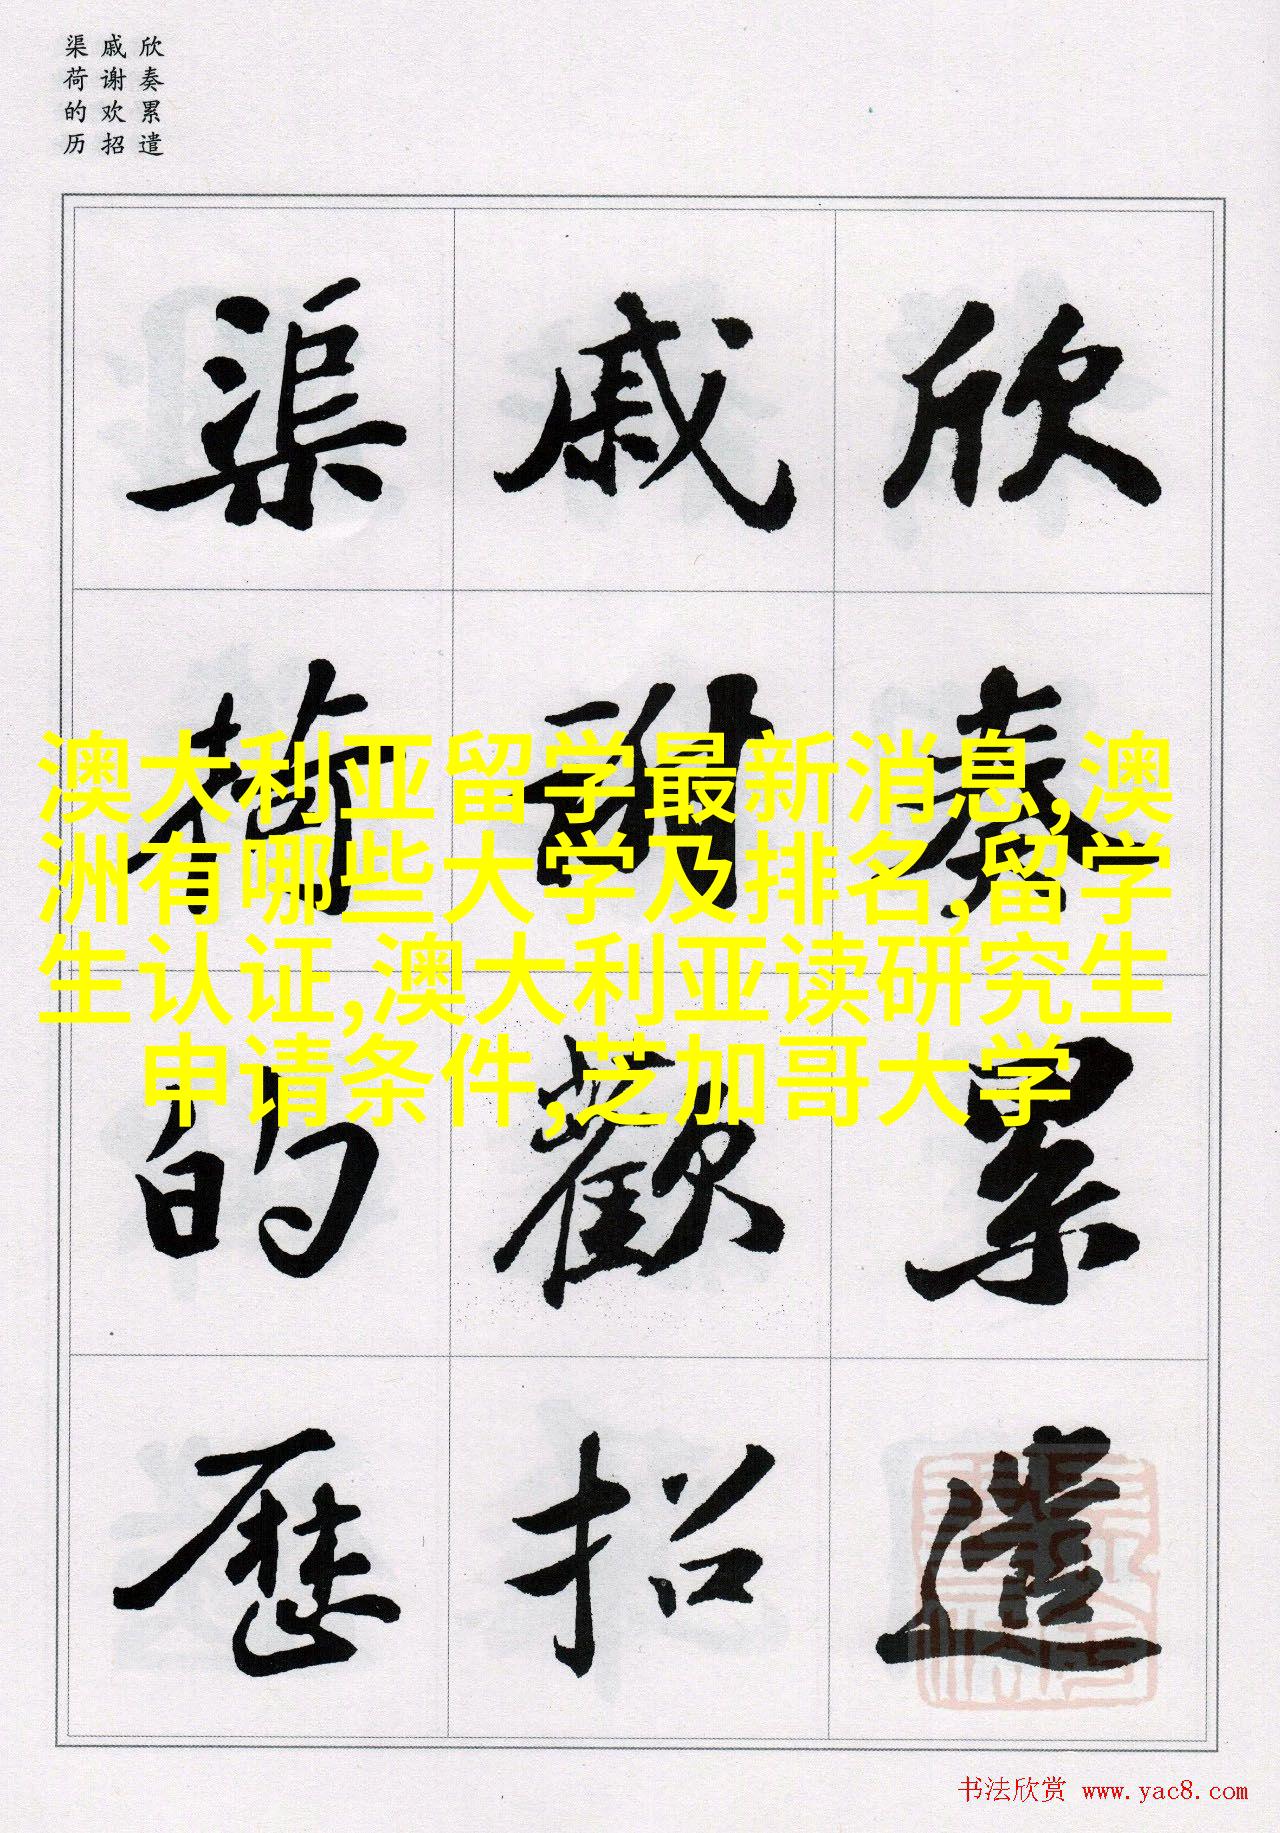 欣奏累遣
戚谢欢招
渠荷的历
欣奏累遣
戚謝歡招
渠荷的歷
澳大利亚留学最新消息,澳
洲有哪些大学及排名,留学
生认证,澳大利亚读研究生
申请条件,芝加哥大学
书法欣赏 www.yac8.com